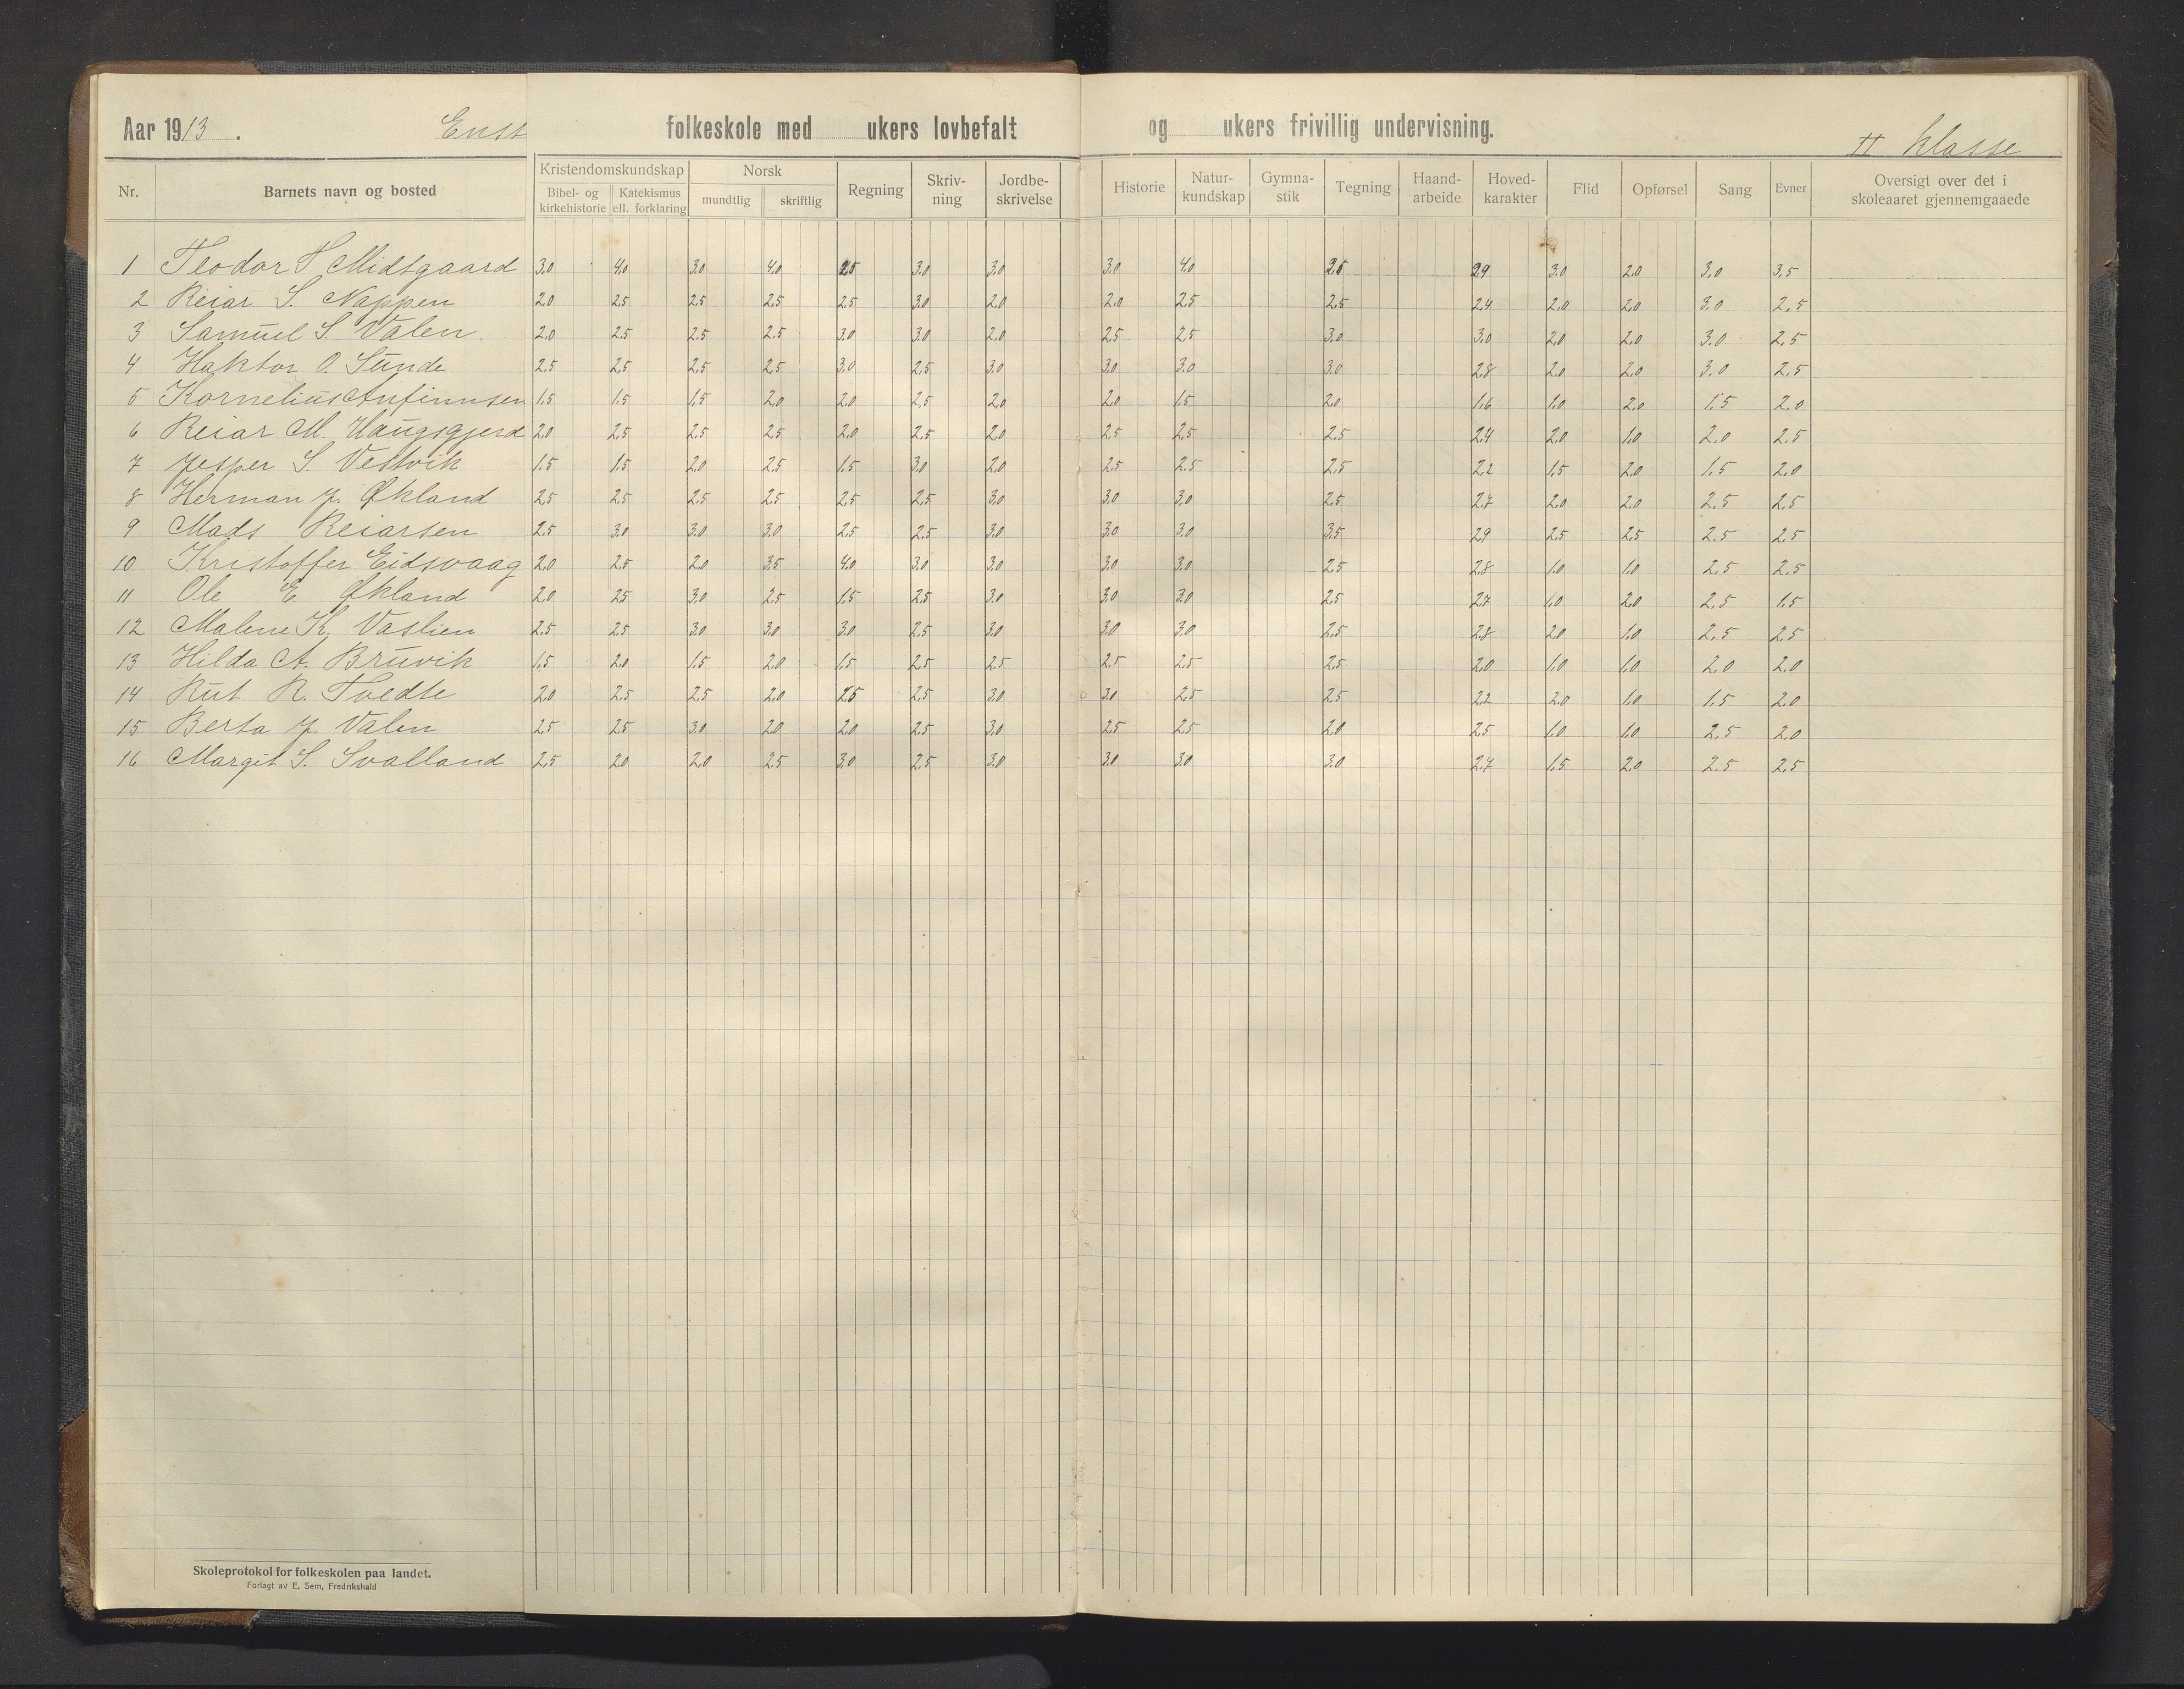 Aar 1913. Enst folkeskole med ukers lovbefalt og ukers frivillig undervisning.
II Klasse
Nr. Barnets navn og bosted Kristendomskundskap Bibel- og kirkehistorie Katekismus ell. forklaring Norsk mundtlig skriftlig Regning Skriv-ning Jordbe-skrivelse Historie Natur-kundskap Gymna-stik Tegning Haand-arbeide Hoved-karakter Flid Opførsel Sang Evner Oversigt over det i skoleaaret gjennemgaaede
1 Teodor H Midtgaard 3.0 4.0 3.0 4.0 2.5 3.0 3.0 3.0 4.0 2.5 2.9 3.0 2.0 3.0 3.5
2 Reiar S. Nappen 2.0 2.5 2.5 2.5 2.5 3.0 2.0 2.0 2.5 2.5 2.4 2.0 2.0 3.0 2.5
3 Samuel S. Valen 2.0 2.5 2.5 2.5 3.0 3.0 2.0 2.5 2.5 3.0 3.0 2.0 2.0 3.0 2.5
4 Haktor O. Sunde 2.5 2.5 2.5 2.5 3.0 2.5 3.0 3.0 3.0 3.0 2.8 2.0 2.0 3.0 2.5
5 Kornelius Anfinnsen 1.5 1.5 1.5 2.0 2.0 2.5 2.0 2.0 1.5 2.0 1.6 1.0 2.0 1.5 2.0
6 Reiar M. Haugsgjerd 2.0 2.5 2.5 2.5 2.0 2.5 2.0 2.5 2.5 2.5 2.4 2.0 1.0 2.0 2.5
7 Jesper S. Vestvik 1.5 1.5 2.0 2.5 1.5 3.0 2.0 2.5 2.5 2.5 2.2 1.5 2.0 1.5 2.0
8 Herman J. Økland 2.5 2.5 2.5 2.5 2.5 2.5 3.0 3.0 3.0 2.5 2.7 2.0 2.0 2.5 2.5
9 Mads Reiarsen 2.5 3.0 3.0 3.0 2.5 2.5 3.0 3.0 3.0 3.5 2.9 2.5 2.5 2.5 2.5
10 Kristoffer Eidsvaag 2.0 2.5 2.0 3.5 4.0 3.0 3.0 3.0 3.0 2.5 2.8 1.0 1.0 2.5 2.5
11 Ole E. Økland 2.0 2.5 3.0 2.5 1.5 2.5 3.0 3.0 3.0 2.5 2.7 1.0 2.0 2.5 1.5
12 Malene K. Vaslien 2.5 2.5 3.0 3.0 3.0 2.5 3.0 3.0 3.0 2.5 2.8 2.0 1.0 2.5 2.5
13 Hilda A. Bruvik 1.5 2.0 1.5 2.0 1.5 2.5 2.5 2.5 2.5 2.5 2.0 1.0 1.0 2.0 2.0
14 Rut R. Tvedte 2.0 2.5 2.5 2.0 2.5 2.5 3.0 3.0 2.5 2.5 2.2 2.0 1.0 1.5 2.0
15 Berta J. Valen 2.5 2.5 3.0 2.0 2.0 2.5 3.0 2.5 2.5 2.0 2.5 1.0 1.0 2.5 2.0
16 Margit S. Svalland 2.5 2.0 2.0 2.5 3.0 2.5 3.0 3.0 3.0 3.0 2.7 1.5 2.0 2.5 2.5
Skoleprotokol for folkeskolen paa landet.
Forlagt av E. Sem, Fredrikshald